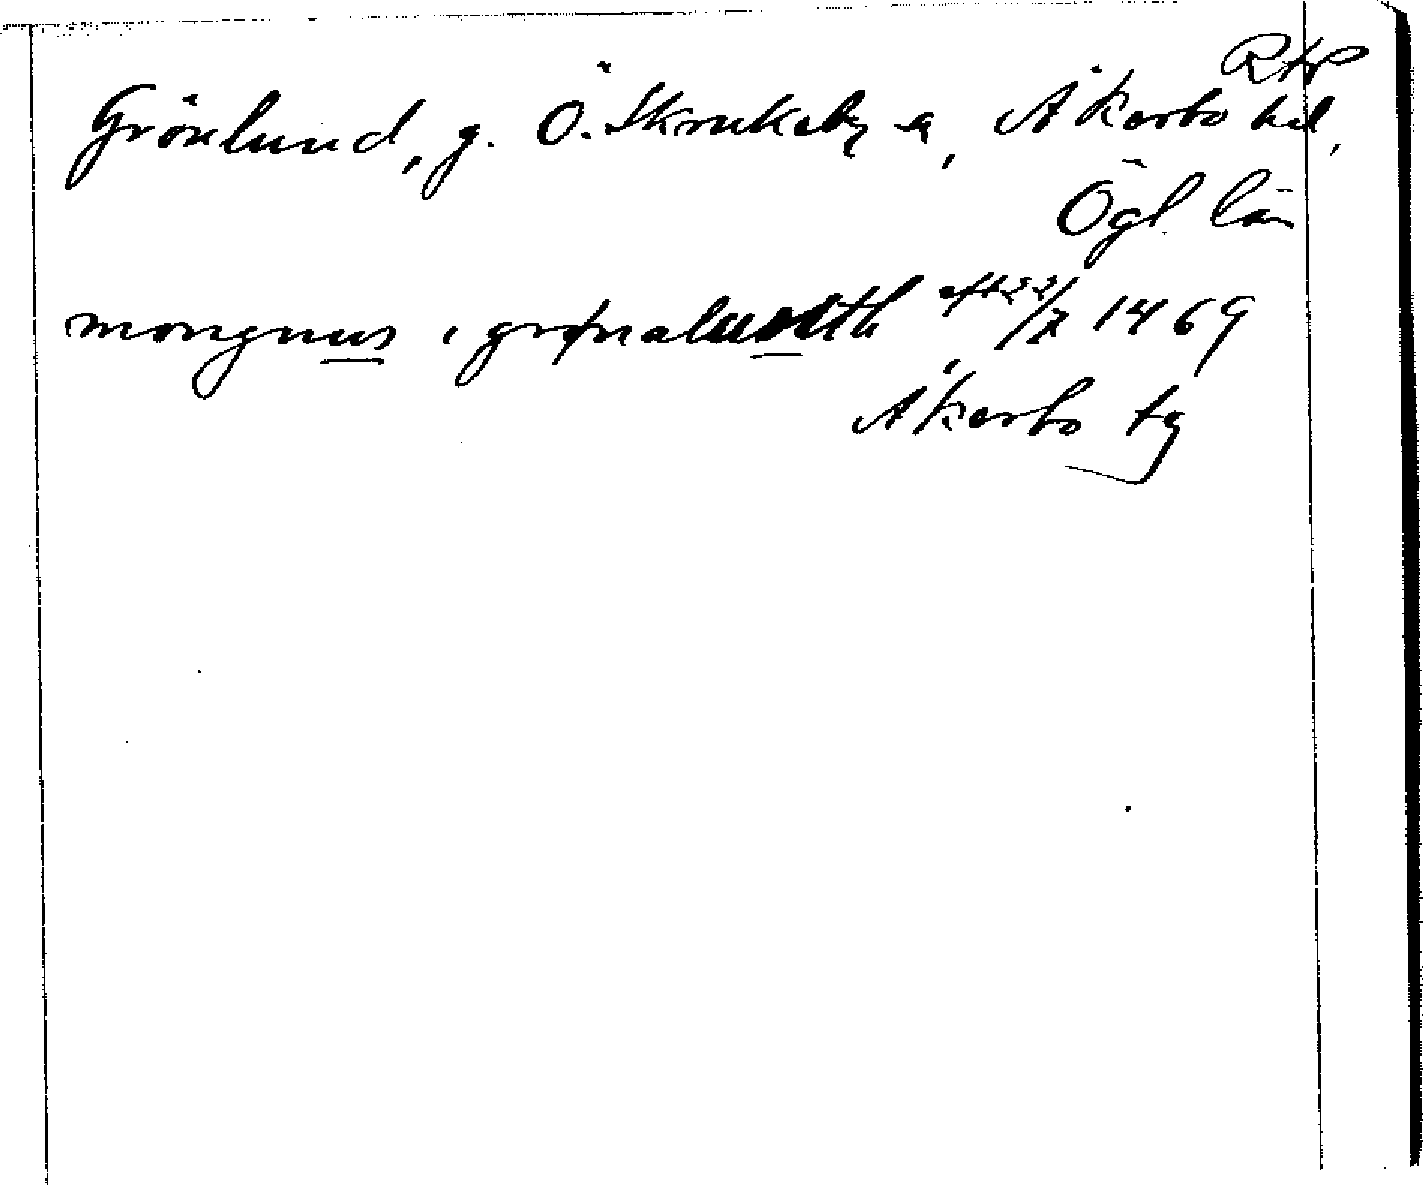 Rtp
Grönlund, g. Ö. Skrukeby sn, Åkerbo hd,
Ögl. län
mongnus i grønalundh eft 22/7 1469
Åkerbo tg